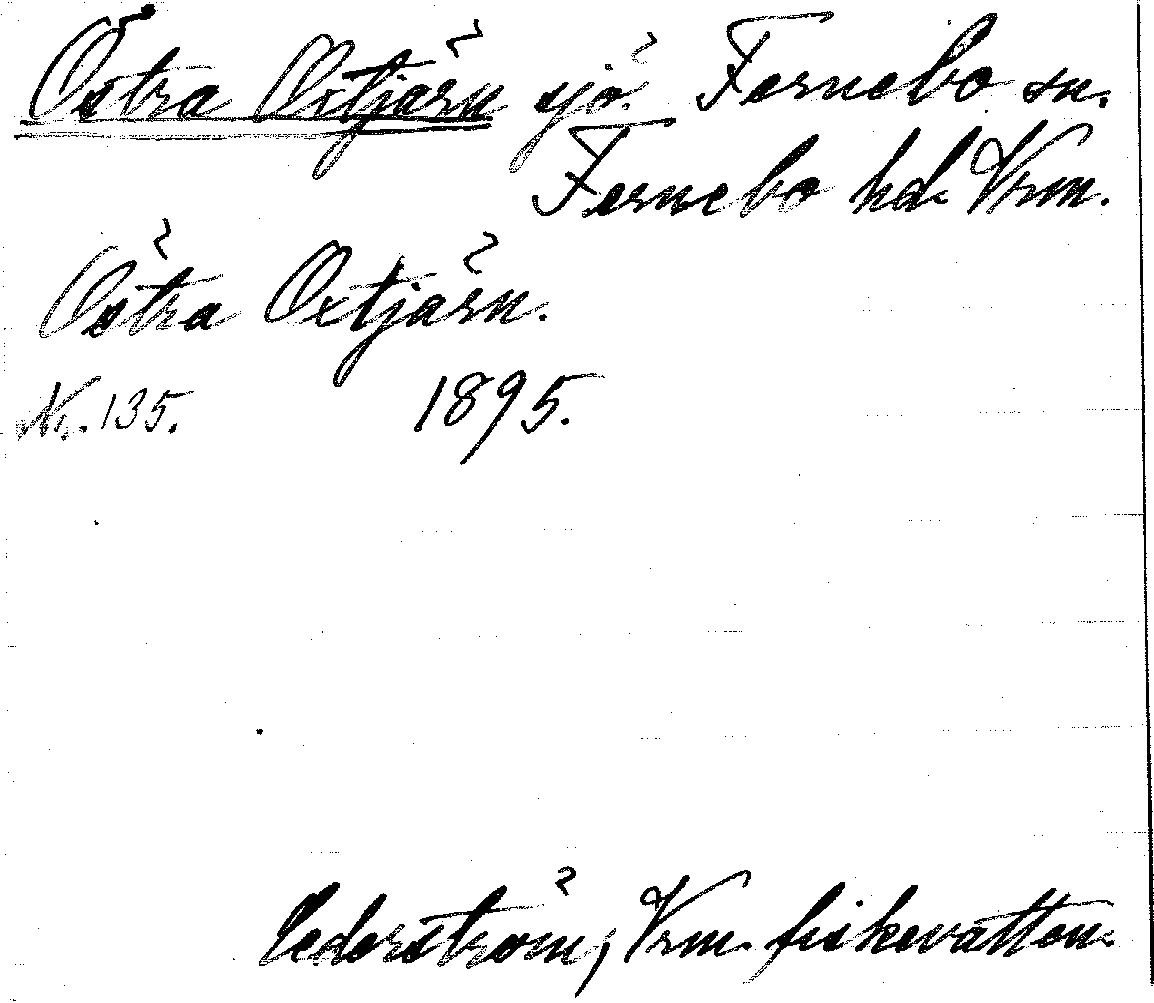 Östra Oxtjärn sjö Fernebo sn.
Fernebo hd. Vrm.
Östra Oxtjärn.
Nr. 135. 1895.
Cederström, Vrm. fiskevatten.